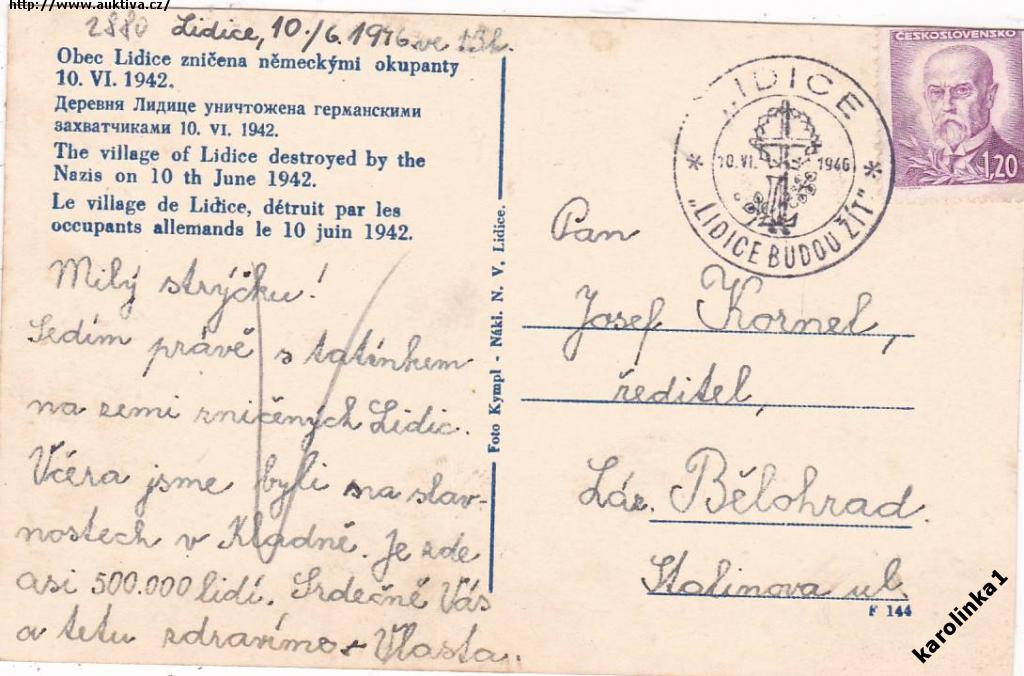 http://www.auktiva.cz/
2880 Lidice, 10./6. 1946. ve 13h.
Obec Lidice zničena německými okupanty
10. VI. 1942.
Деревня Лидице уничтожена германскими
захватчиками 10. VI. 1942.
The village of Lidice destroyed by the
Nazis on 10 th June 1942.
Le village de Lidice, détruit par les
occupants allemands le 10 juin 1942.
Milý strýčku!
Sedím právě s tatínkem
na zemi zničených Lidic.
Včera jsme byli na slav-
nostech v Kladně. Je zde
asi 500.000 lidí. Srdečně Vás
a tetu zdravíme Vlasta.
Foto Kympl - Nákl. N. V. Lidice.
LIDICE
10. VI. 1946
* "LIDICE BUDOU ŽÍT" *
ČESKOSLOVENSKO
1,20
Pan
Josef Kornel,
ředitel,
Láz. Bělohrad.
Stalinova ul.
F 144
karolinka1